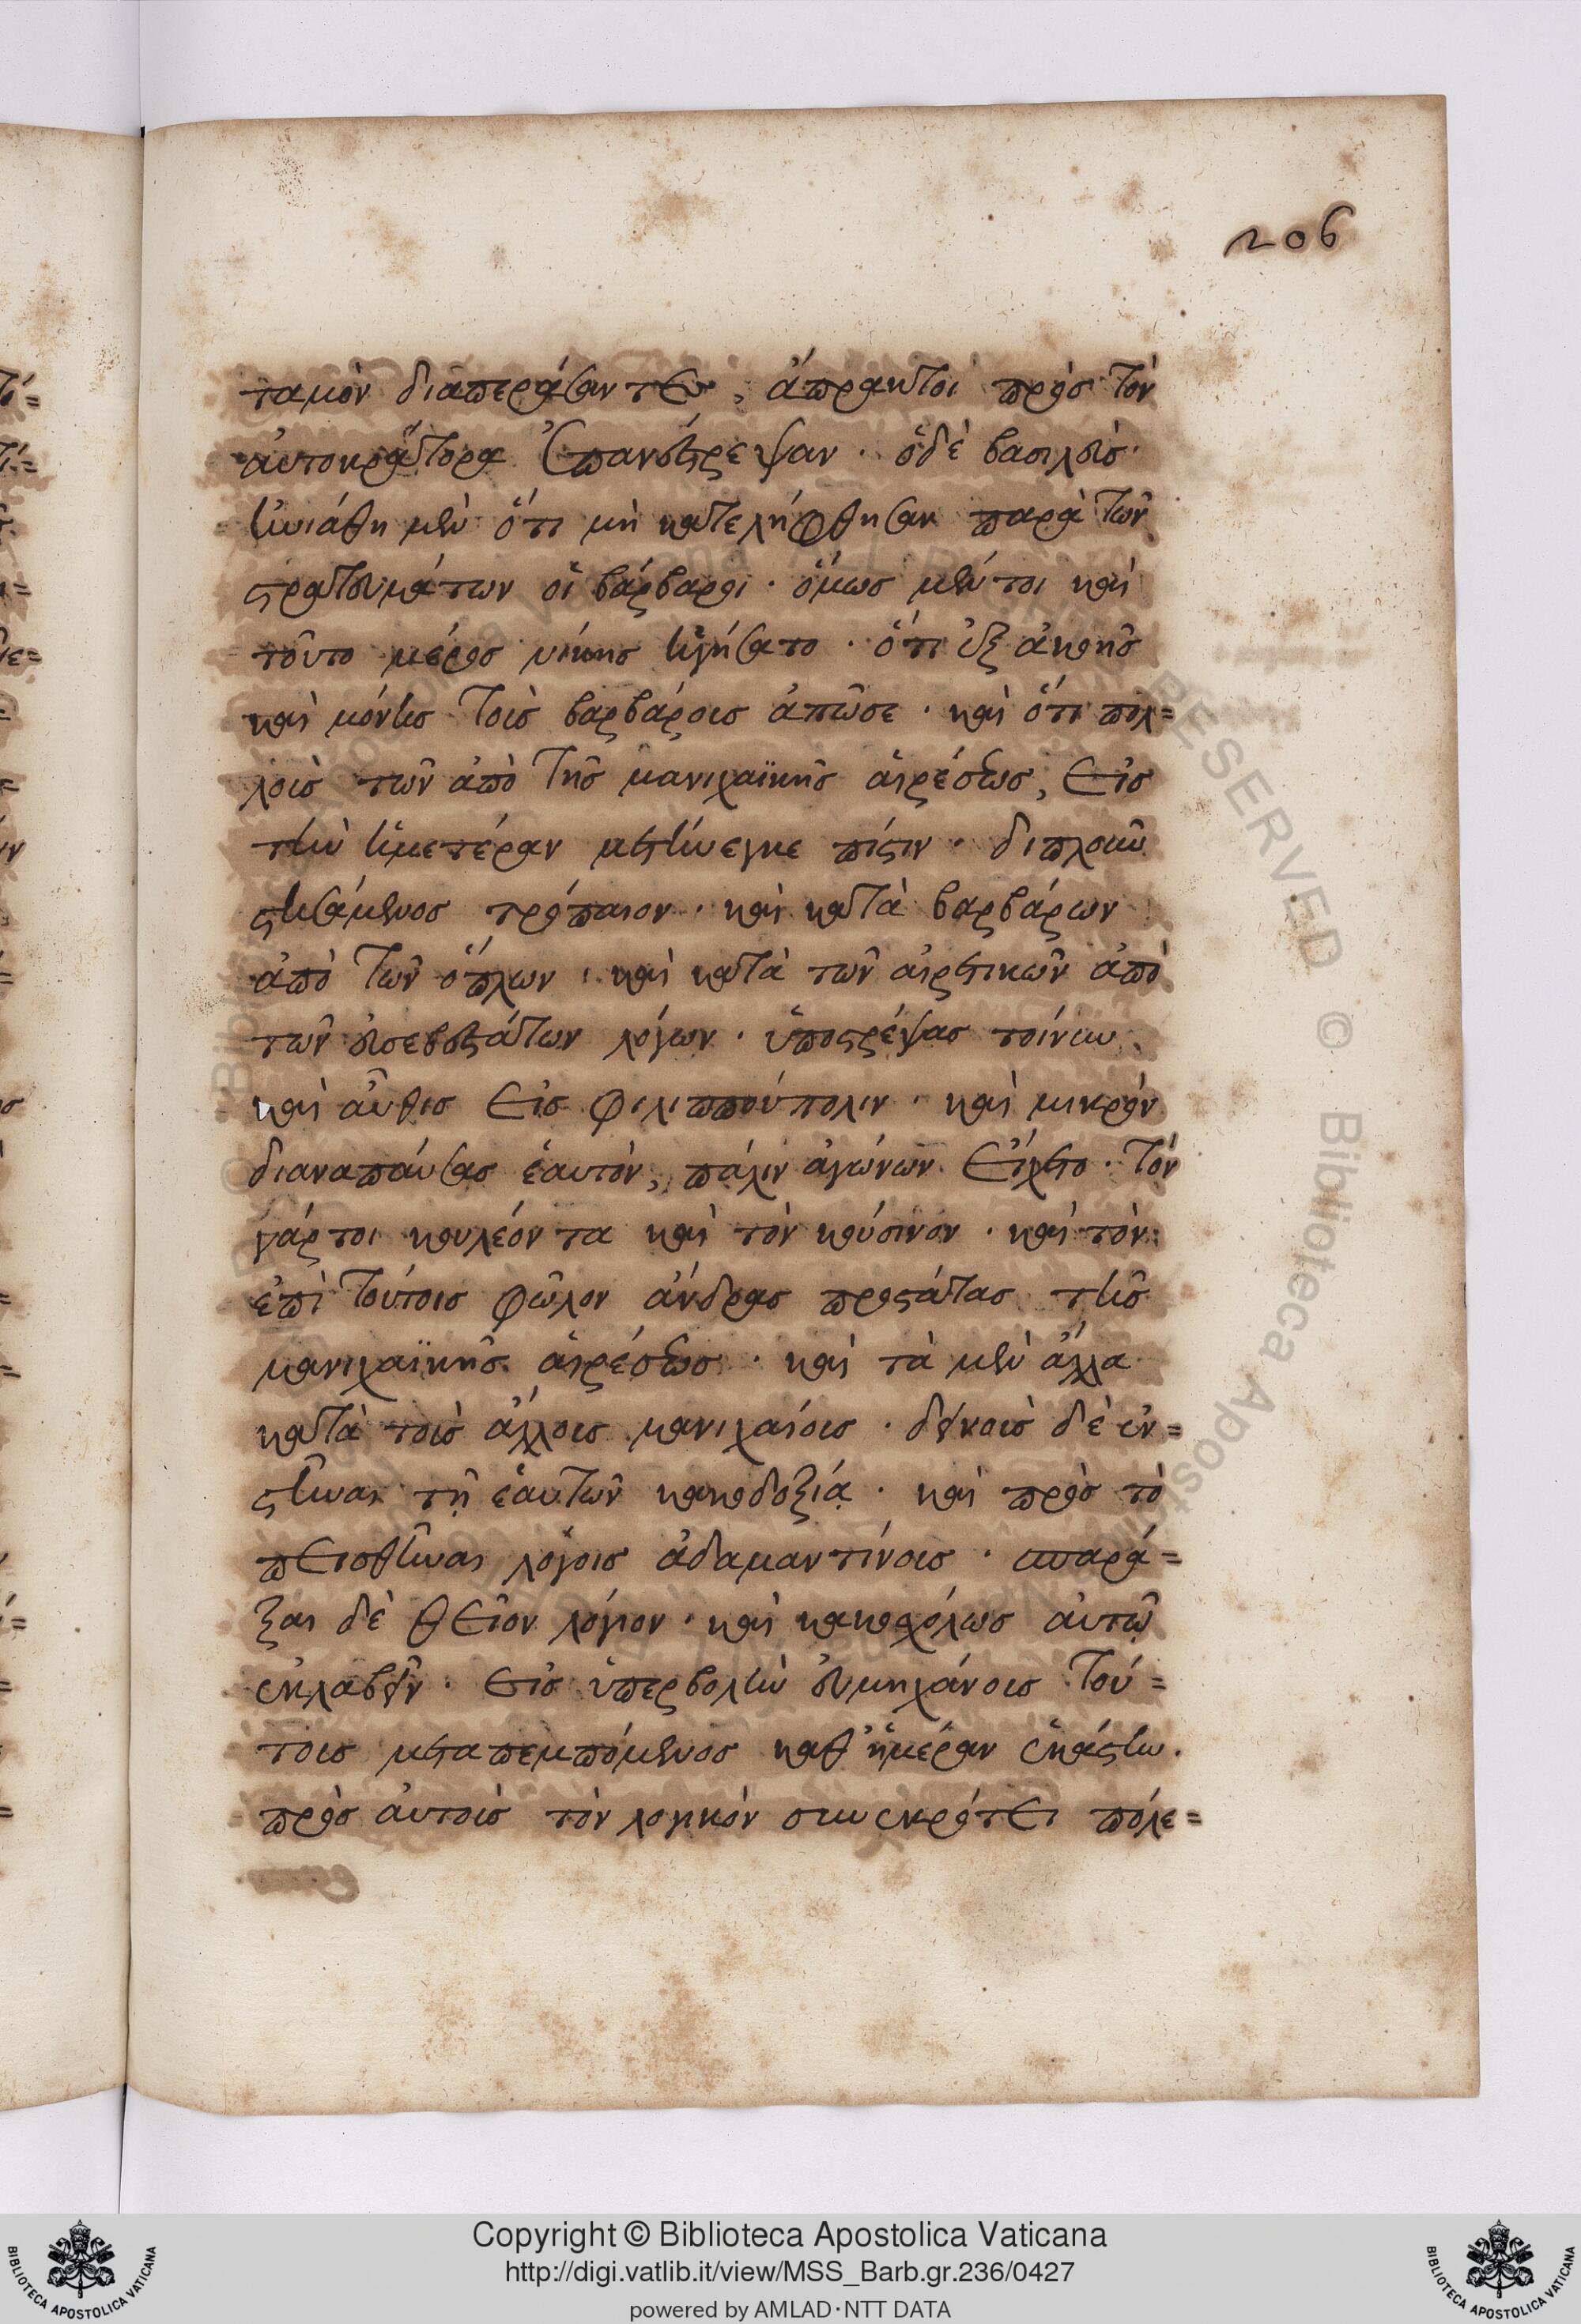 206
ταμὸν διαπεράσαντες, ἄπρακτοι πρὸς τὸν
αὐτοκράτορα ἐπανέστρεψαν · ὁ δὲ βασιλεὺς
ἠνιάθη μὲν ὅτι μὴ κατελήφθησαν παρὰ τῶν
στρατευμάτων οἱ βάρβαροι · ὅμως μέντοι καὶ
τοῦτο μέρος νίκης ἡγήσατο · ὅτι ἐξ ἀκοῆς
καὶ μόνης τοὺς βαρβάρους ἀπῶσε · καὶ ὅτι πολ=
λοὺς τῶν ἀπὸ τῆς μανιχαϊκῆς αἱρέσεως, εἰς
τὴν ἡμετέραν μετήνεγκε πίστιν · διπλοῦν
στησάμενος τρόπαιον · καὶ κατὰ βαρβάρων
ἀπὸ τῶν ὅπλων · καὶ κατὰ τῶν αἱρετικῶν ἀπὸ
τῶν εὐσεβεστάτων λόγων · ὑποστρέψας τοίνυν
καὶ αὖθις εἰς φιλιππούπολιν · καὶ μικρὸν
διαναπαύσας ἑαυτὸν, πάλιν ἀγώνων εἴχετο · τὸν
γάρ τοι κουλέοντα καὶ τὸν κούσινον · καὶ τὸν
ἐπὶ τούτοις φῶλον ἄνδρας προστάτας τῆς
μανιχαϊκῆς αἱρέσεως · καὶ τὰ μὲν ἄλλα
κατὰ τοὺς ἄλλους μανιχαίους · δεινοὺς δὲ ἐν=
στῆναι τῇ ἑαυτῶν κακοδοξίᾳ · καὶ πρὸς τὸ
πεισθῆναι λόγοις ἀδαμαντίνους · σπαρά=
ξαι δὲ θεῖον λόγιον · καὶ κακοσχόλως αὐτῷ
ἐκλαβεῖν · εἰς ὑπερβολὴν εὐμηχάνους τού=
τους μεταπεμπόμενος καθ' ἡμέραν ἑκάστην ·
πρὸς αὐτοὺς τὸν λογικὸν συνεκρότει πόλε=
Copyright © Biblioteca Apostolica Vaticana
http://digi.vatlib.it/view/MSS_Barb.gr.236/0427
powered by AMLAD·NTT DATA
BIBLIOTECA APOSTOLICA VATICANA
BIBLIOTECA APOSTOLICA VATICANA